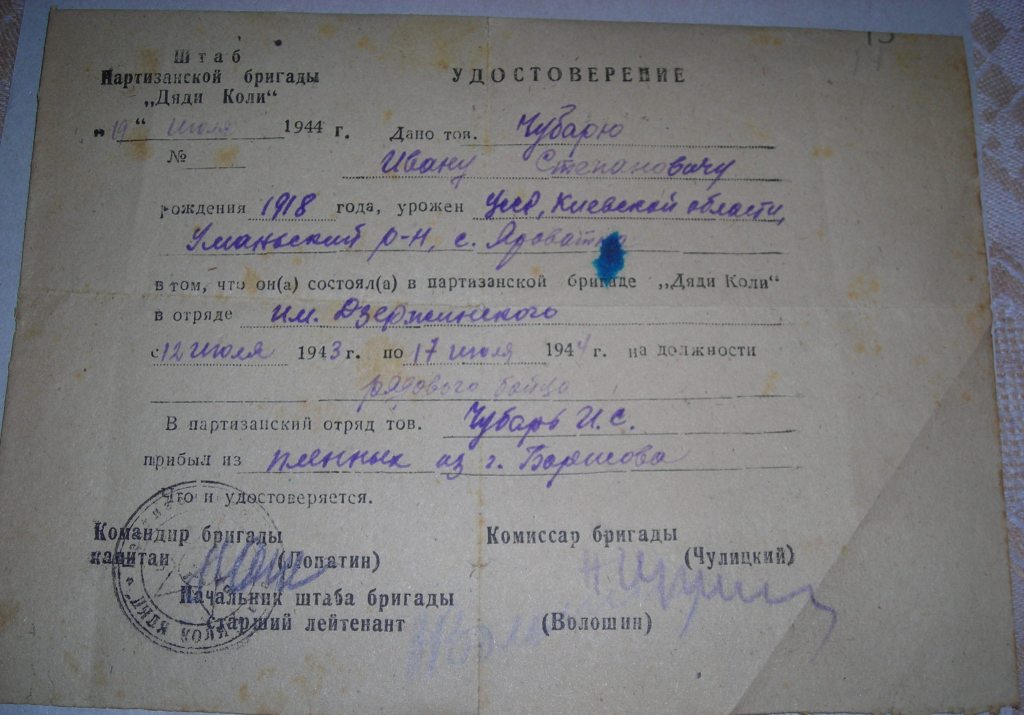 Штаб
Партизанской бригады
„Дяди Коли“
УДОСТОВЕРЕНИЕ
„19“ июля 1944 г.
№
Дано тов. Чубарю
Ивану Степановичу
рождения 1918 года, урожен УССР, Киевской области,
Уманьский р-н, с. Яроватка
в том, что он(а) состоял(а) в партизанской бригаде „Дяди Коли“
в отряде им. Дзержинского
с 12 июля 1943 г. по 17 июля 1944 г. на должности
рядового бойца
В партизанский отряд тов. Чубарь И.С.
прибыл из пленных из г. Борисова
Что и удостоверяется.
Командир бригады
капитан (Лопатин)
Комиссар бригады
(Чулицкий)
Начальник штаба бригады
старший лейтенант (Волошин)
„ДЯДЯ КОЛЯ“